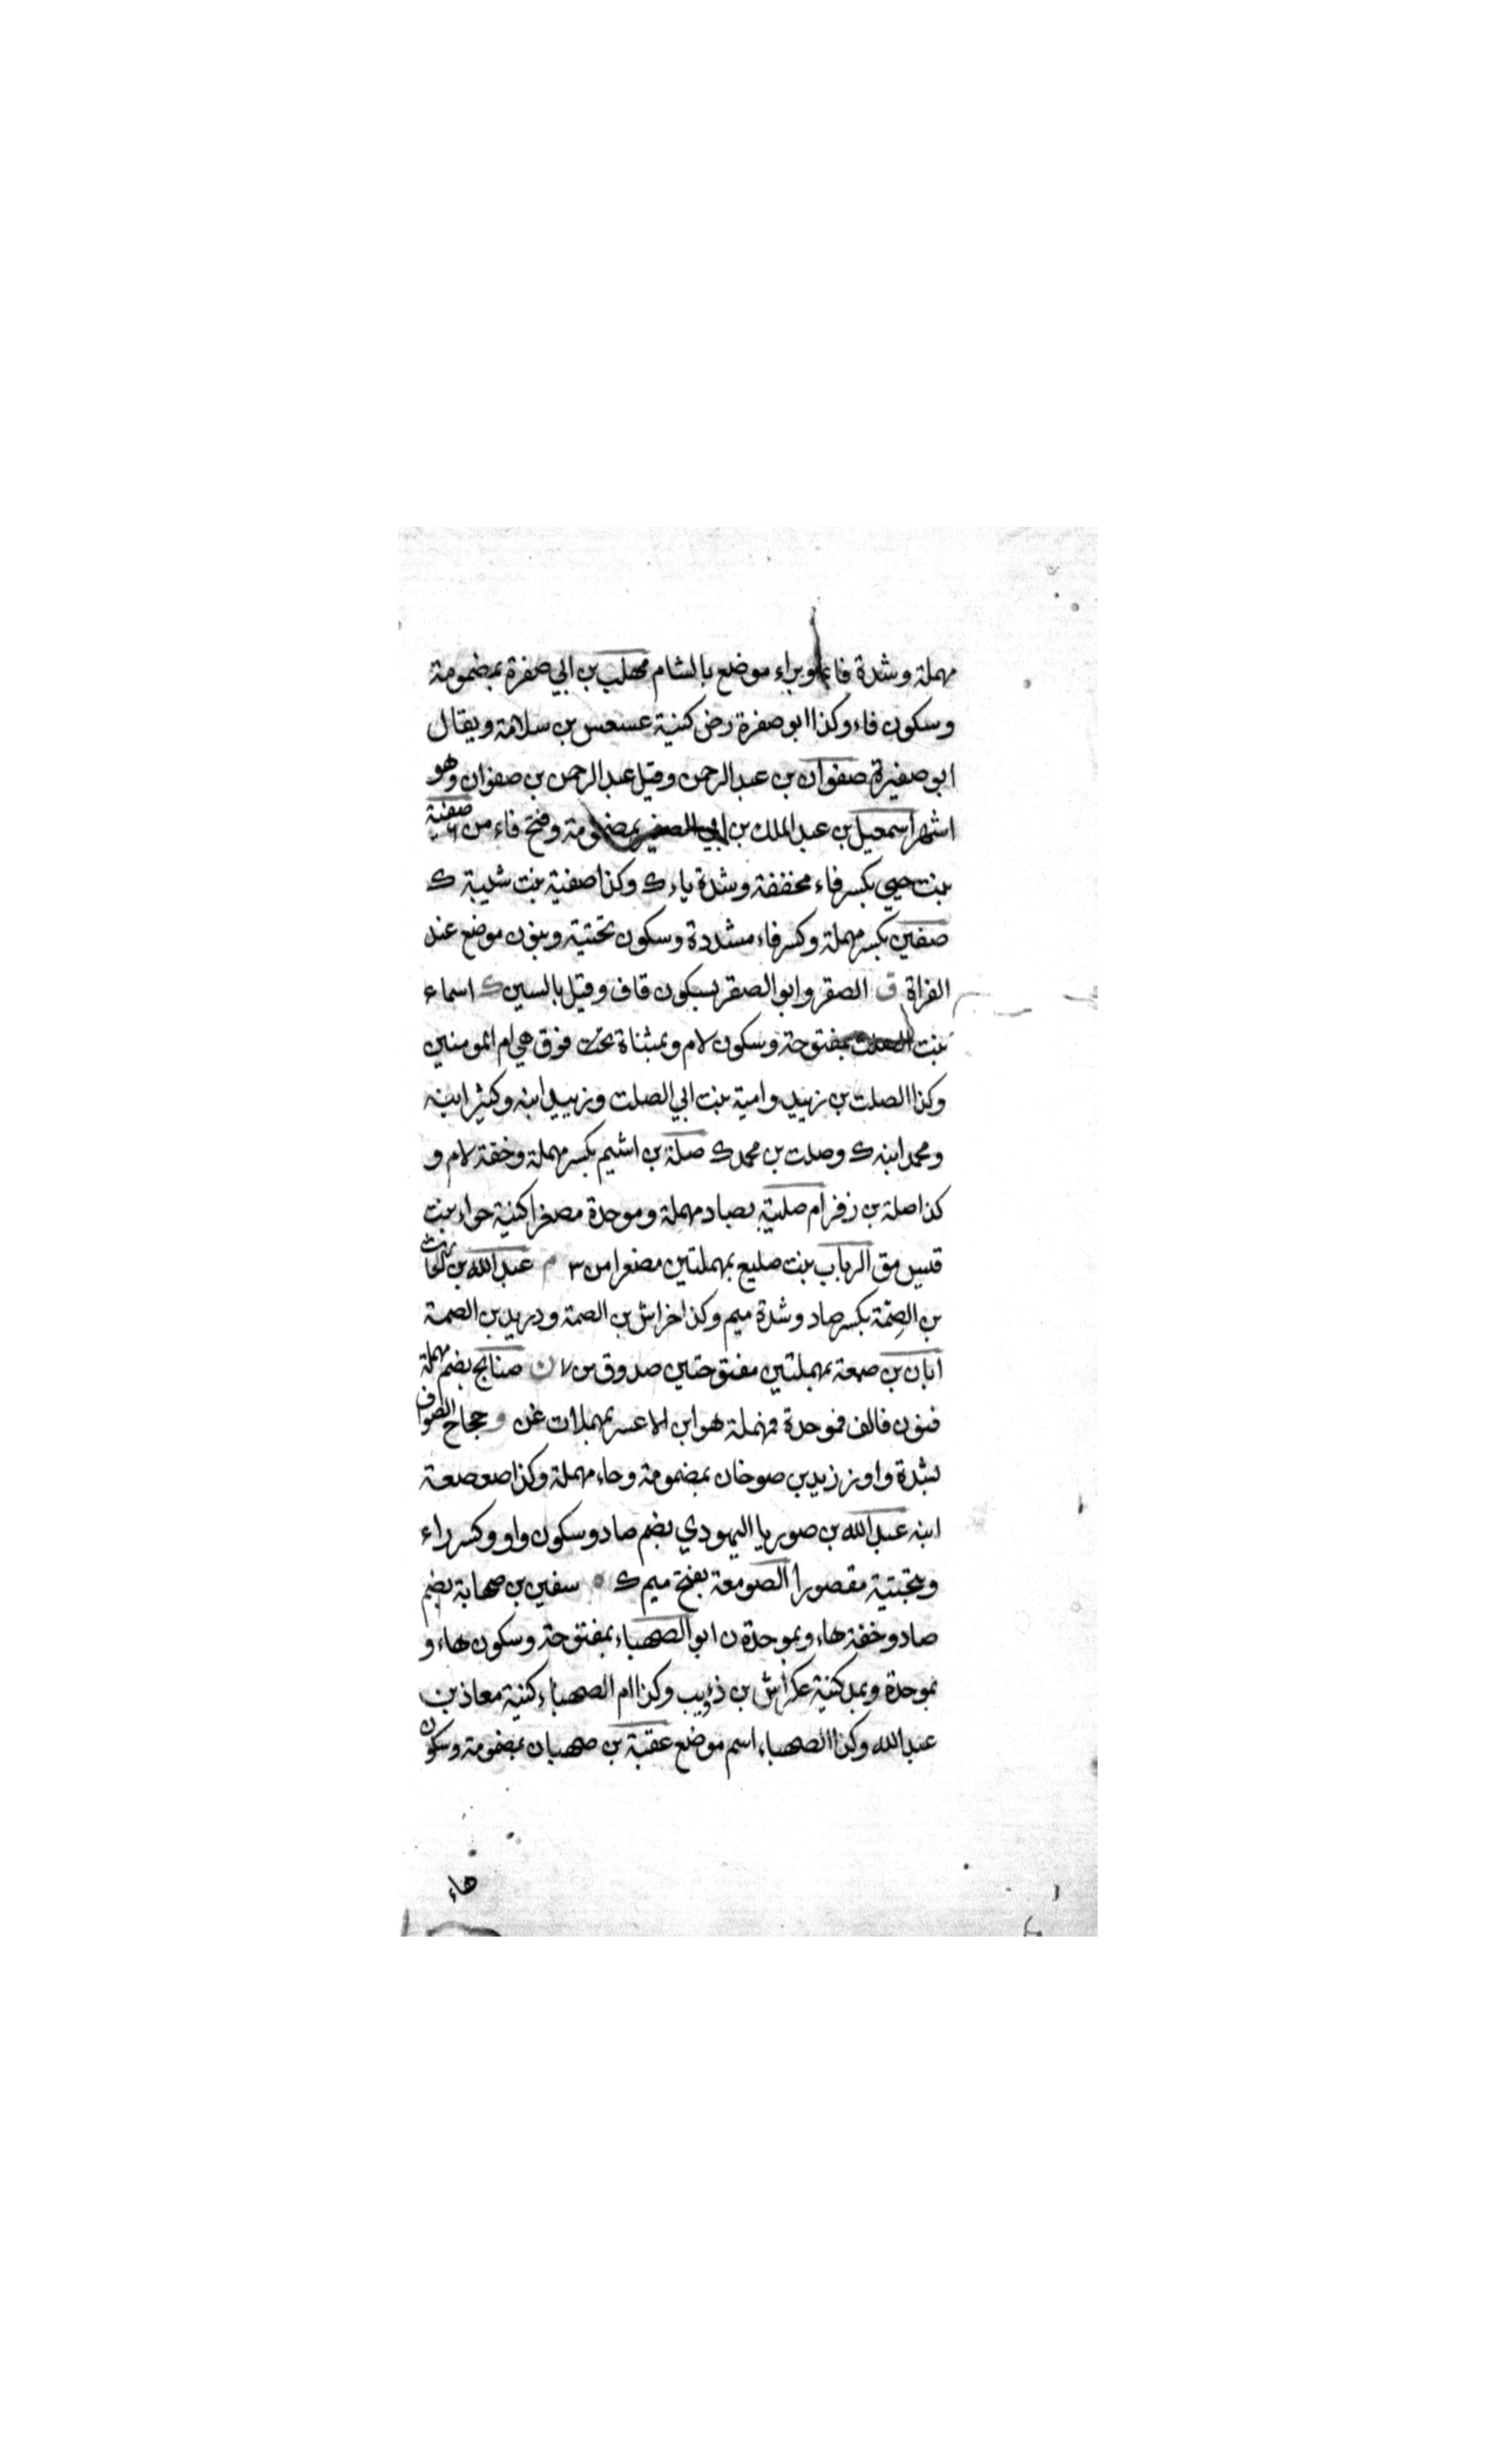 مهملة وشدة فاء وبراء موضع بالشام مهلب بن ابي صفرة بمضمومة
وسكون فاء وكذا ابو صفرة رض كنية عسعس بن سلامة ويقال
ابو صفيرة صفوان بن عبد الرحمن وقيل عبد الرحمن بن صفوان وهو
اشهر اسمعيل بن عبد الملك بن ابي الصفير بمضمومة وفتح فاء من صفية
بنت حيي بكسر فاء مخففة وشدة ياء ك وكذا صفية بنت شيبة ك
صفين بكسر مهملة وكسر فاء مشددة وسكون تحتية وبنون موضع عند
الفراة ق الصقر وابو الصقر بسكون قاف وقيل بالسين ك اسماء
بنت الصلت بمفتوحة وسكون لام وبمثناة تحت فوق هي ام المومنين
وكذا الصلت بن زبيد وامية بنت ابي الصلت وزبيد ابنه وكثير ابنه
ومحمد ابنه ك وصلت بن محمد ك صلة بن اشيم بكسر مهملة وخفة لام و
كذا صلة بن زفر ام صلية بصاد مهملة وموحدة مصغرا كنية حواء بنت
قيس مق الرباب بنت صليع بمهملتين مصغرا من ٣ م عبد الله بن الحارث
بن الصِمّة بكسر صاد وشدة ميم وكذا خراش بن الصمة ودريد بن الصمة
ابان بن صمعة بمهملتين مفتوحتين صدوق من ٧ ن صنابح بضم مهملة
فنون فالف فموحدة فمهملة هو ابن الاعسر بمهملات غن و حجاج الصواف
بشدة واو ز زيد بن صوحان بمضمومة وحاء مهملة وكذا صعصعة
ابنه عبد الله بن صوريا اليهودي بضم صاد وسكون واو وكسر راء
وبتحتية مقصورا الصومعة بفتح ميم ك ه سفين بن صهابة بضم
صاد وخفة هاء وبموحدة ن ابو الصهباء بمفتوحة وسكون هاء و
بموحدة وبمد كنية عكراش بن ذؤيب وكذا ام الصهباء كنية معاذ بن
عبد الله وكذا الصهباء اسم موضع عقبة بن صهبان بمضمومة وسكون
هاء